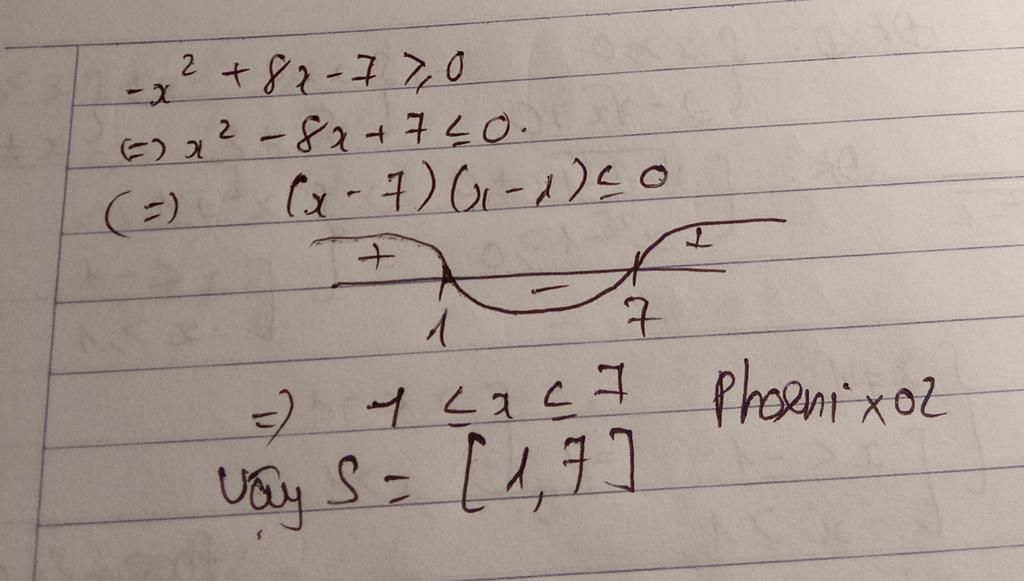 -x² + 8x - 7 ≥ 0
(=) x² - 8x + 7 ≤ 0.
(=) (x - 7)(x - 1) ≤ 0
+ - +
1 7
=) 1 ≤ x ≤ 7 Phoenix02
Vậy S = [1, 7]